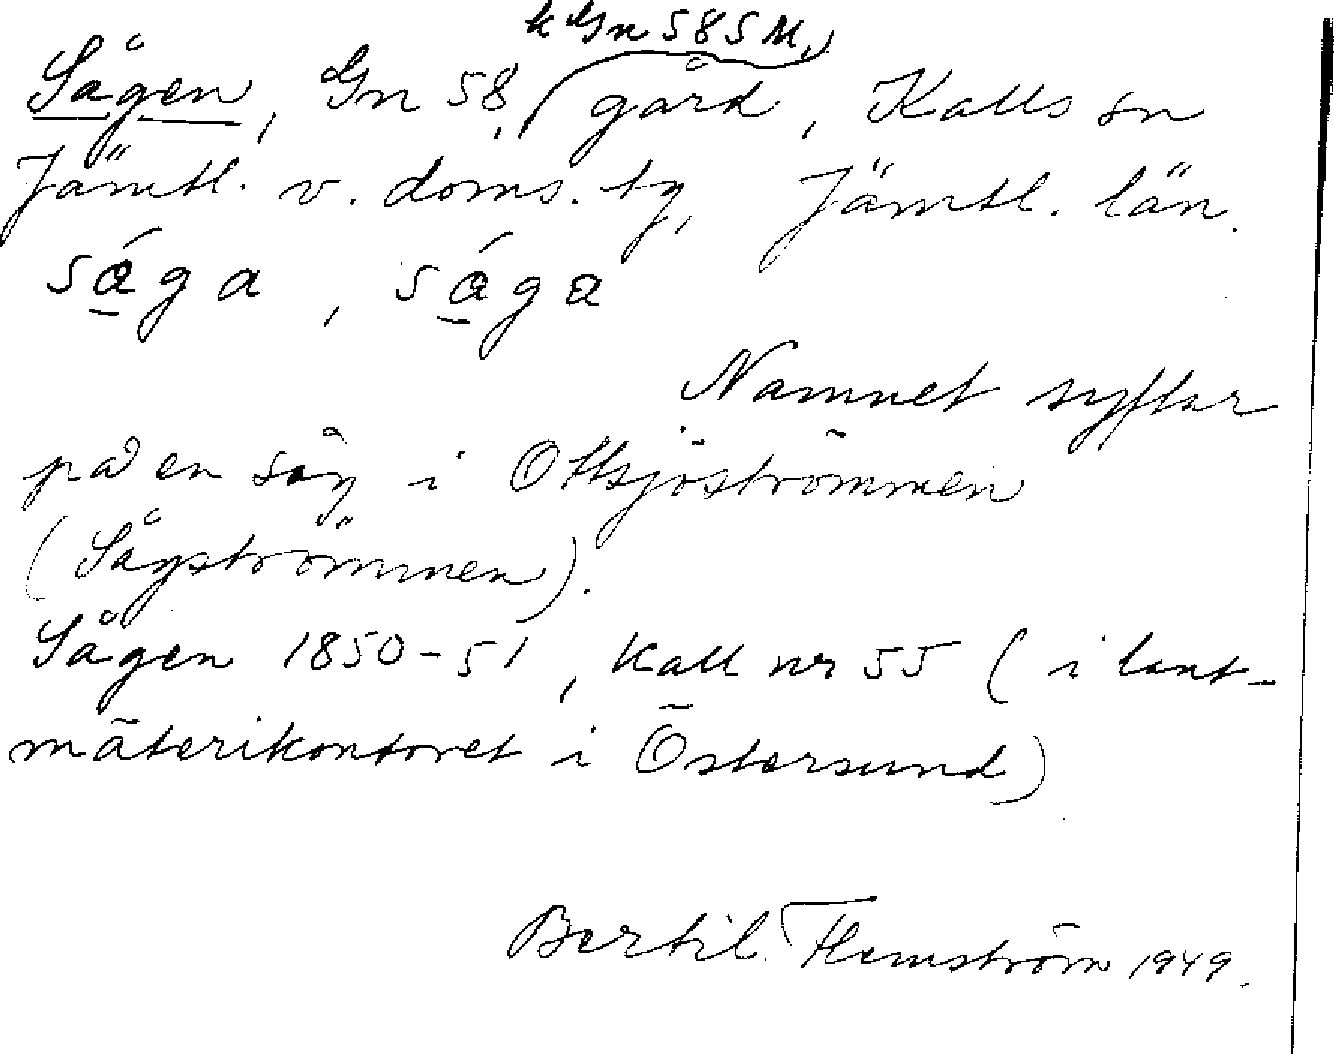 k Gn 585 M.
Sågen, Gn 58, gård, Kalls sn
Jämtl. v. doms. tg, Jämtl. län.
såga, såga
Namnet syftar
på en såg i Ottsjöströmmen
(Sågströmmen).
Sågen 1850-51, Kall nr 55 (i lant-
mäterikontoret i Östersund)
Bertil Flemström 1949.